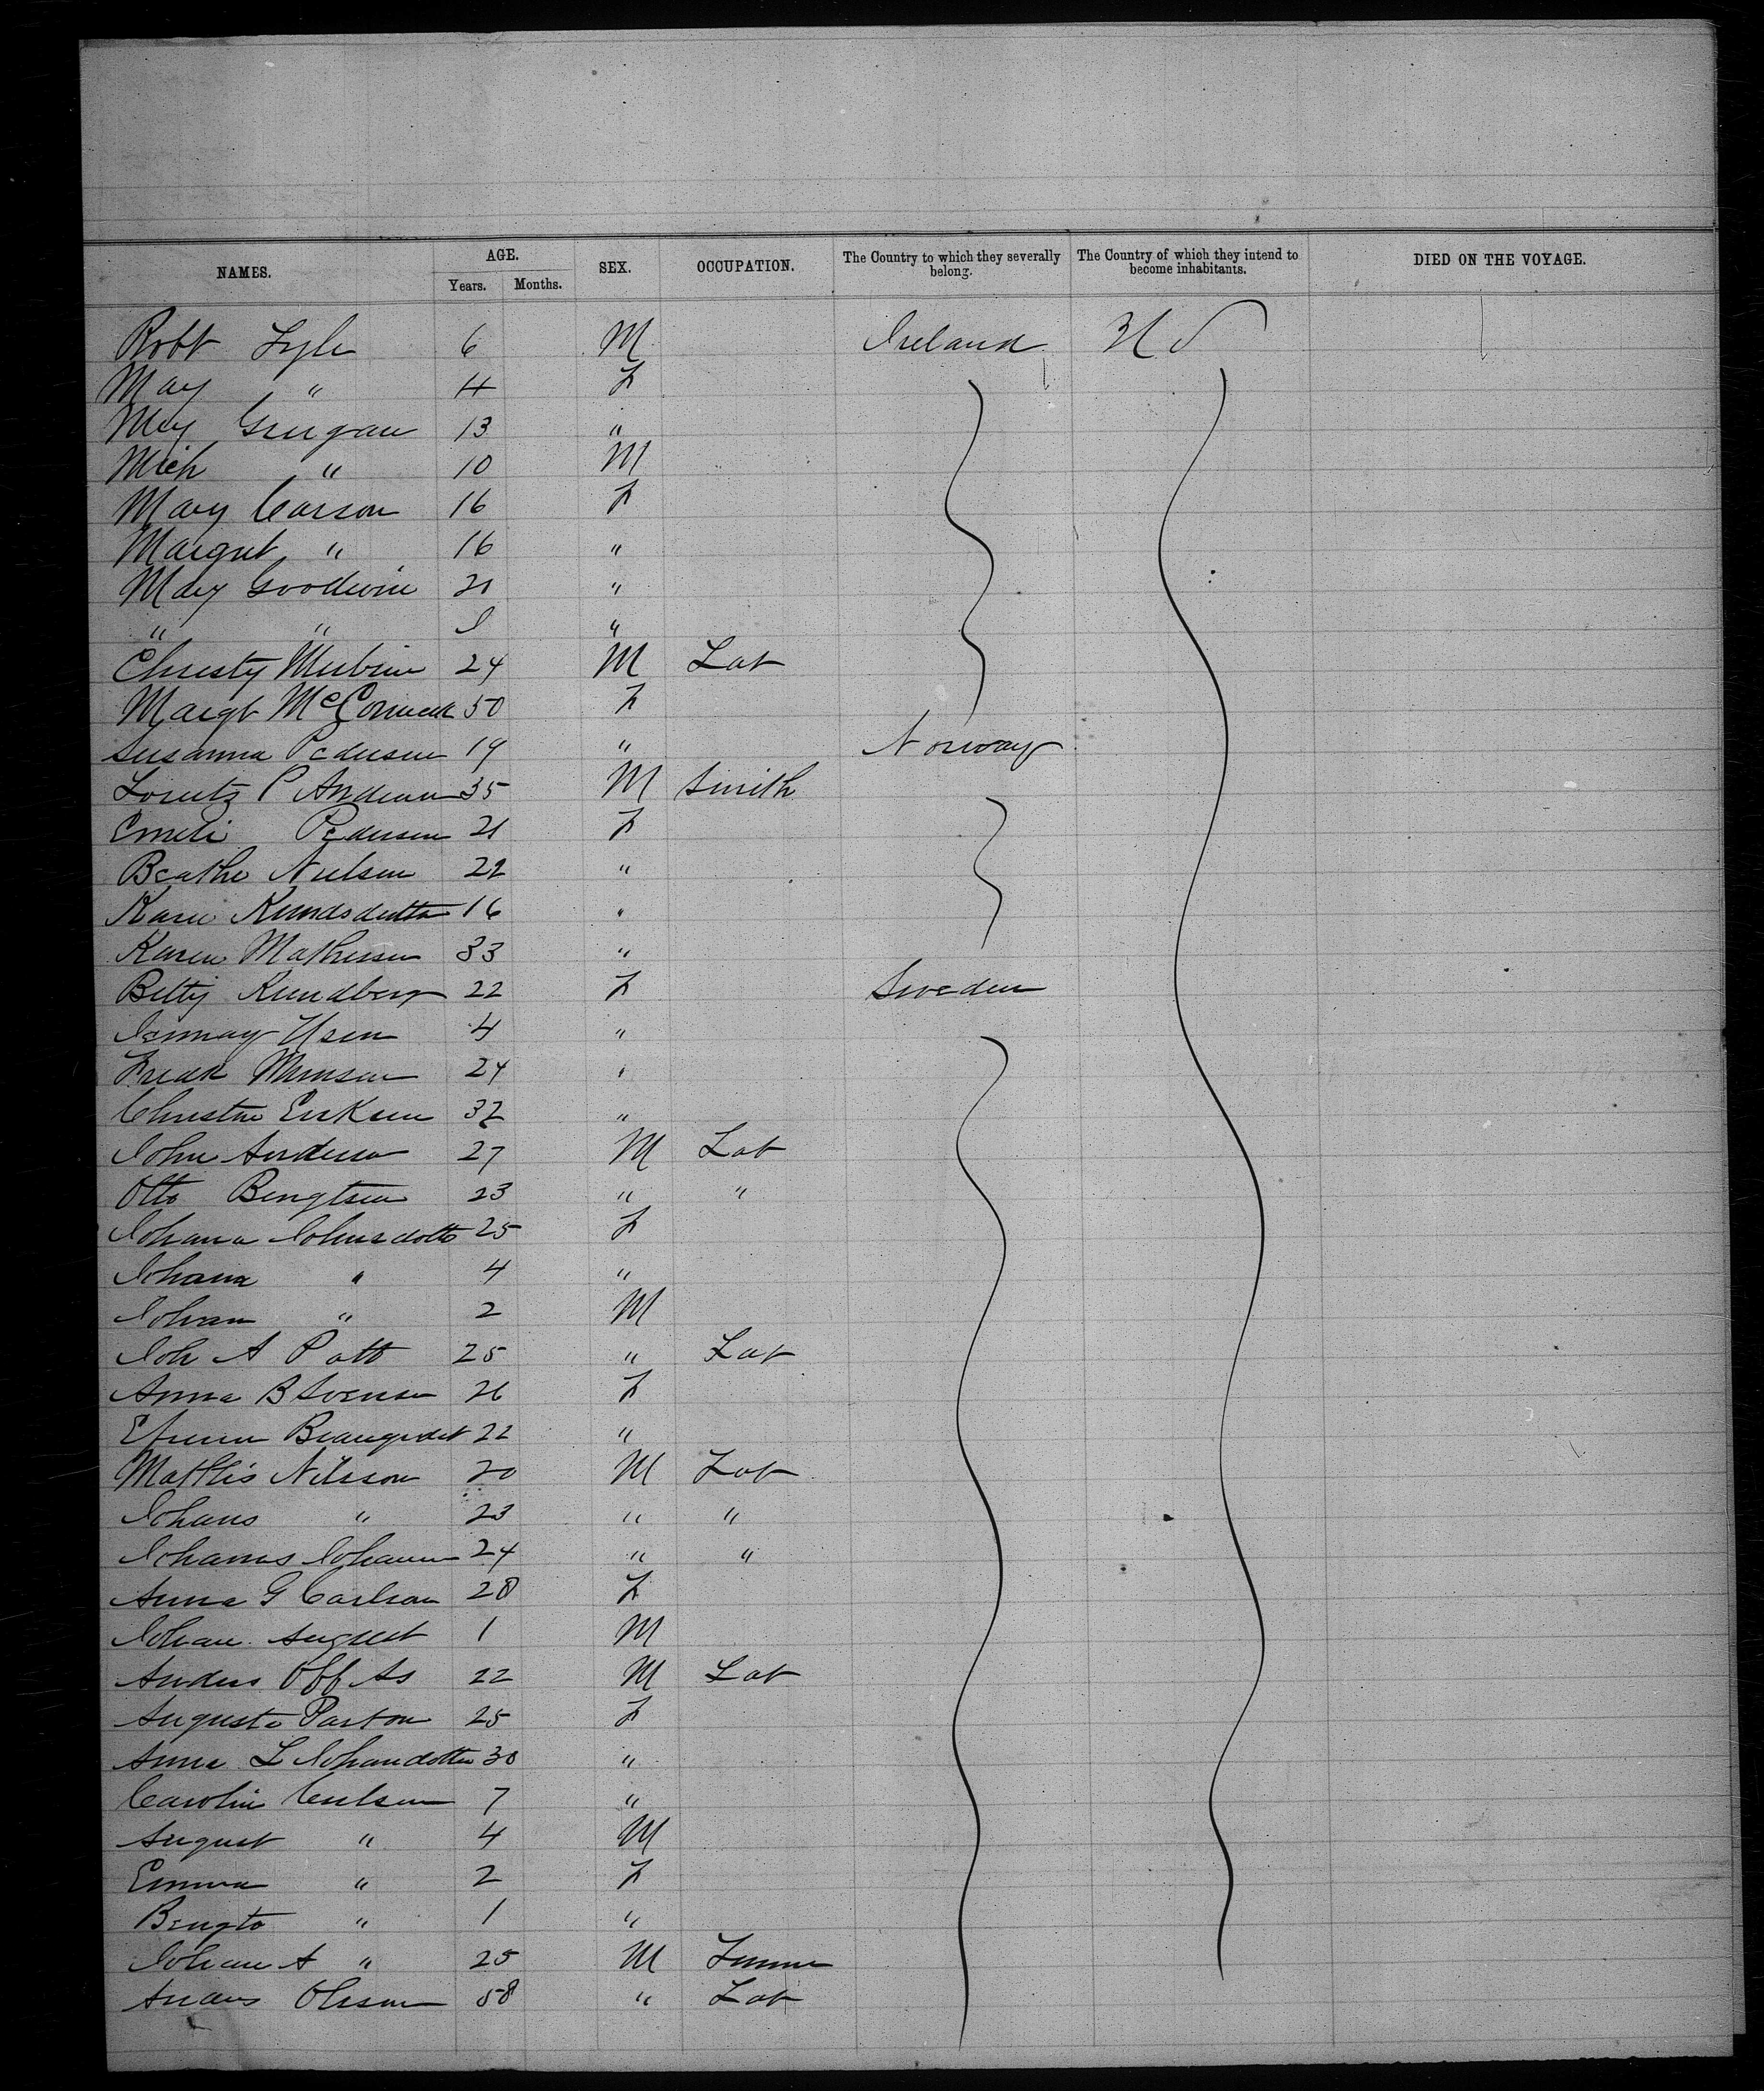 NAMES. AGE. SEX. OCCUPATION. The Country to which they severally belong. The Country of which they intend to become inhabitants. DIED ON THE VOYAGE.
Years. Months.
Robt Lyle 6 M Ireland
May " 4 F
May 13 "
Mich " 10 M
Mary Carson 16 F
Margret " 16 "
Mary Goodwin 21 "
" " "
Christy 24 M Lab
Margt McCormick 50 F
Susanna Pedersen 19 " Norway
Lorentz P Andersen 35 M Smith
Emeli Pedersen 21 F
Beathe Nielsen 22 "
Karen 16 "
Karen Mathesen 33 "
Betty Rundberg 22 F Sweden
4 "
Munson 24 "
Christine Erikson 32 "
John Anderson 27 M Lab
Otto Bengtsen 23 " "
Johana Johnsdotto 25 F
Johana " 4 "
Johan " 2 M
Joh A Patt 25 " Lab
Anna B Svenson 26 F
22 "
Matthis Nilsson 20 M Lab
Johans " 23 " "
Johannes Johansen 24 " "
Anna G Carlson 28 F
Johan August 1 M
Anders 22 M Lab
Augusta 25 F
Anna L Johandotter 30 "
Carolin 7 "
August " 4 M
Emma " 2 F
Bengta " 1 "
Johan A " 25 M
Anders Olsson 58 " Lab